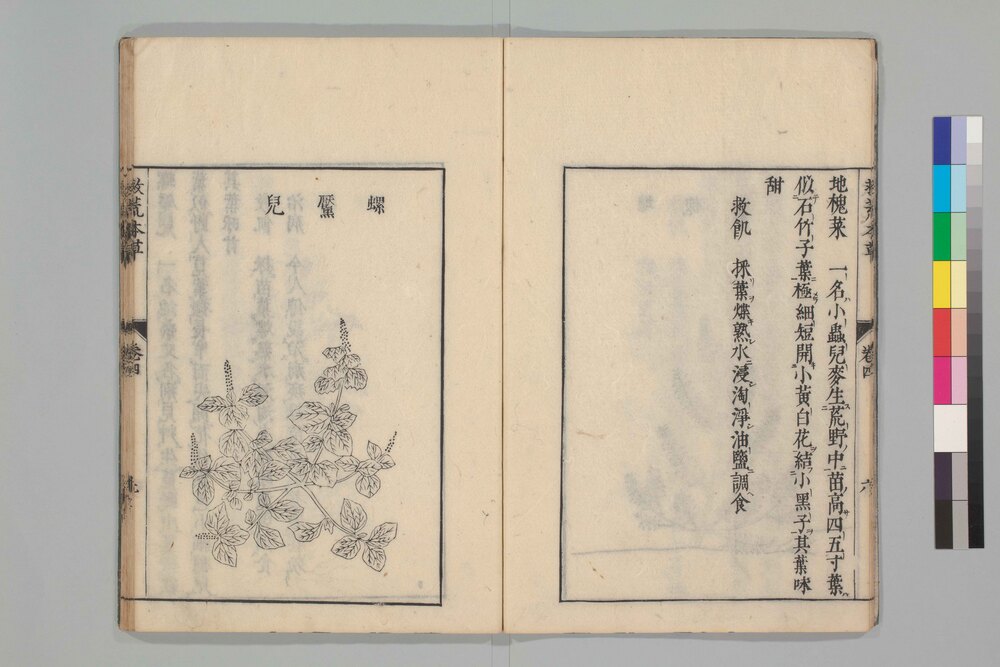 救荒本草
卷四
六
地槐菜 一名小蟲兒麥生荒野中苗高四五寸葉
似石竹子葉極細短開小黃白花結小黑子其葉味
甜
救飢 採葉煠熟水浸淘淨油鹽調食
螺黶兒
救荒本草
卷四